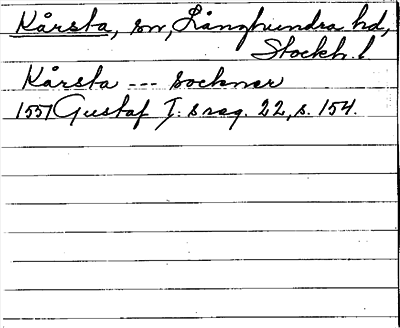 Kårsta, sn, Långhundra hd,
Stockh. l
Kårsta --- socknar
1557 Gustaf I:s reg. 22, s. 154.